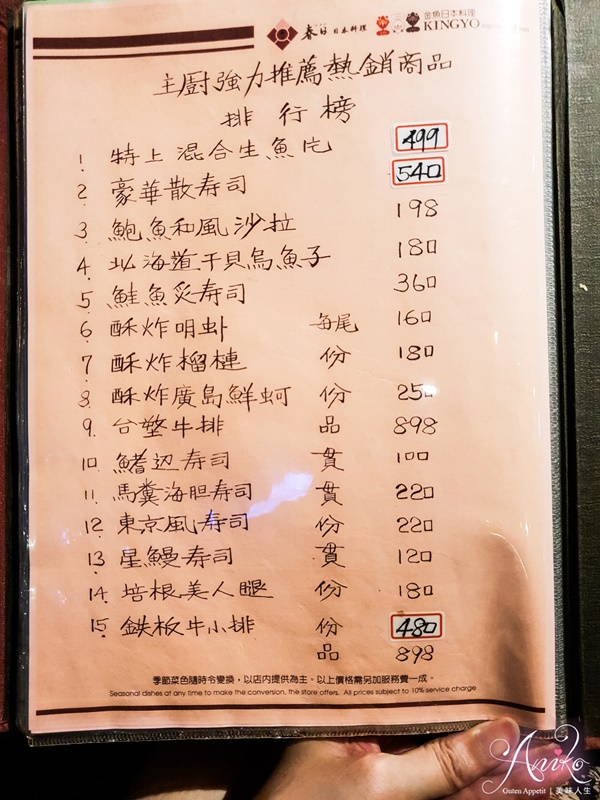 春日 日本料理 金魚日本料理 KINGYO
主廚強力推薦熱銷商品
排行榜
1. 特上混合生魚片 499
2. 豪華散寿司 540
3. 鮑魚和風沙拉 198
4. 北海道干貝烏魚子 180
5. 鮭魚炙寿司 360
6. 酥炸明虾 每尾 160
7. 酥炸榴槤 份 180
8. 酥炸廣島鮮蚵 份 250
9. 台塑牛排 品 898
10. 鰭辺寿司 貫 100
11. 馬糞海胆寿司 貫 220
12. 東京風寿司 份 220
13. 星鰻寿司 貫 120
14. 培根美人腿 份 180
15. 鉄板牛小排 份 480
品 898
季節菜色隨時令變換，以店内提供為主。以上價格需另加服務費一成。
Seasonal dishes at any time to make the conversion, the store offers. All prices subject to 10% service charge
Aniko
Guten Appetit | 美味人生